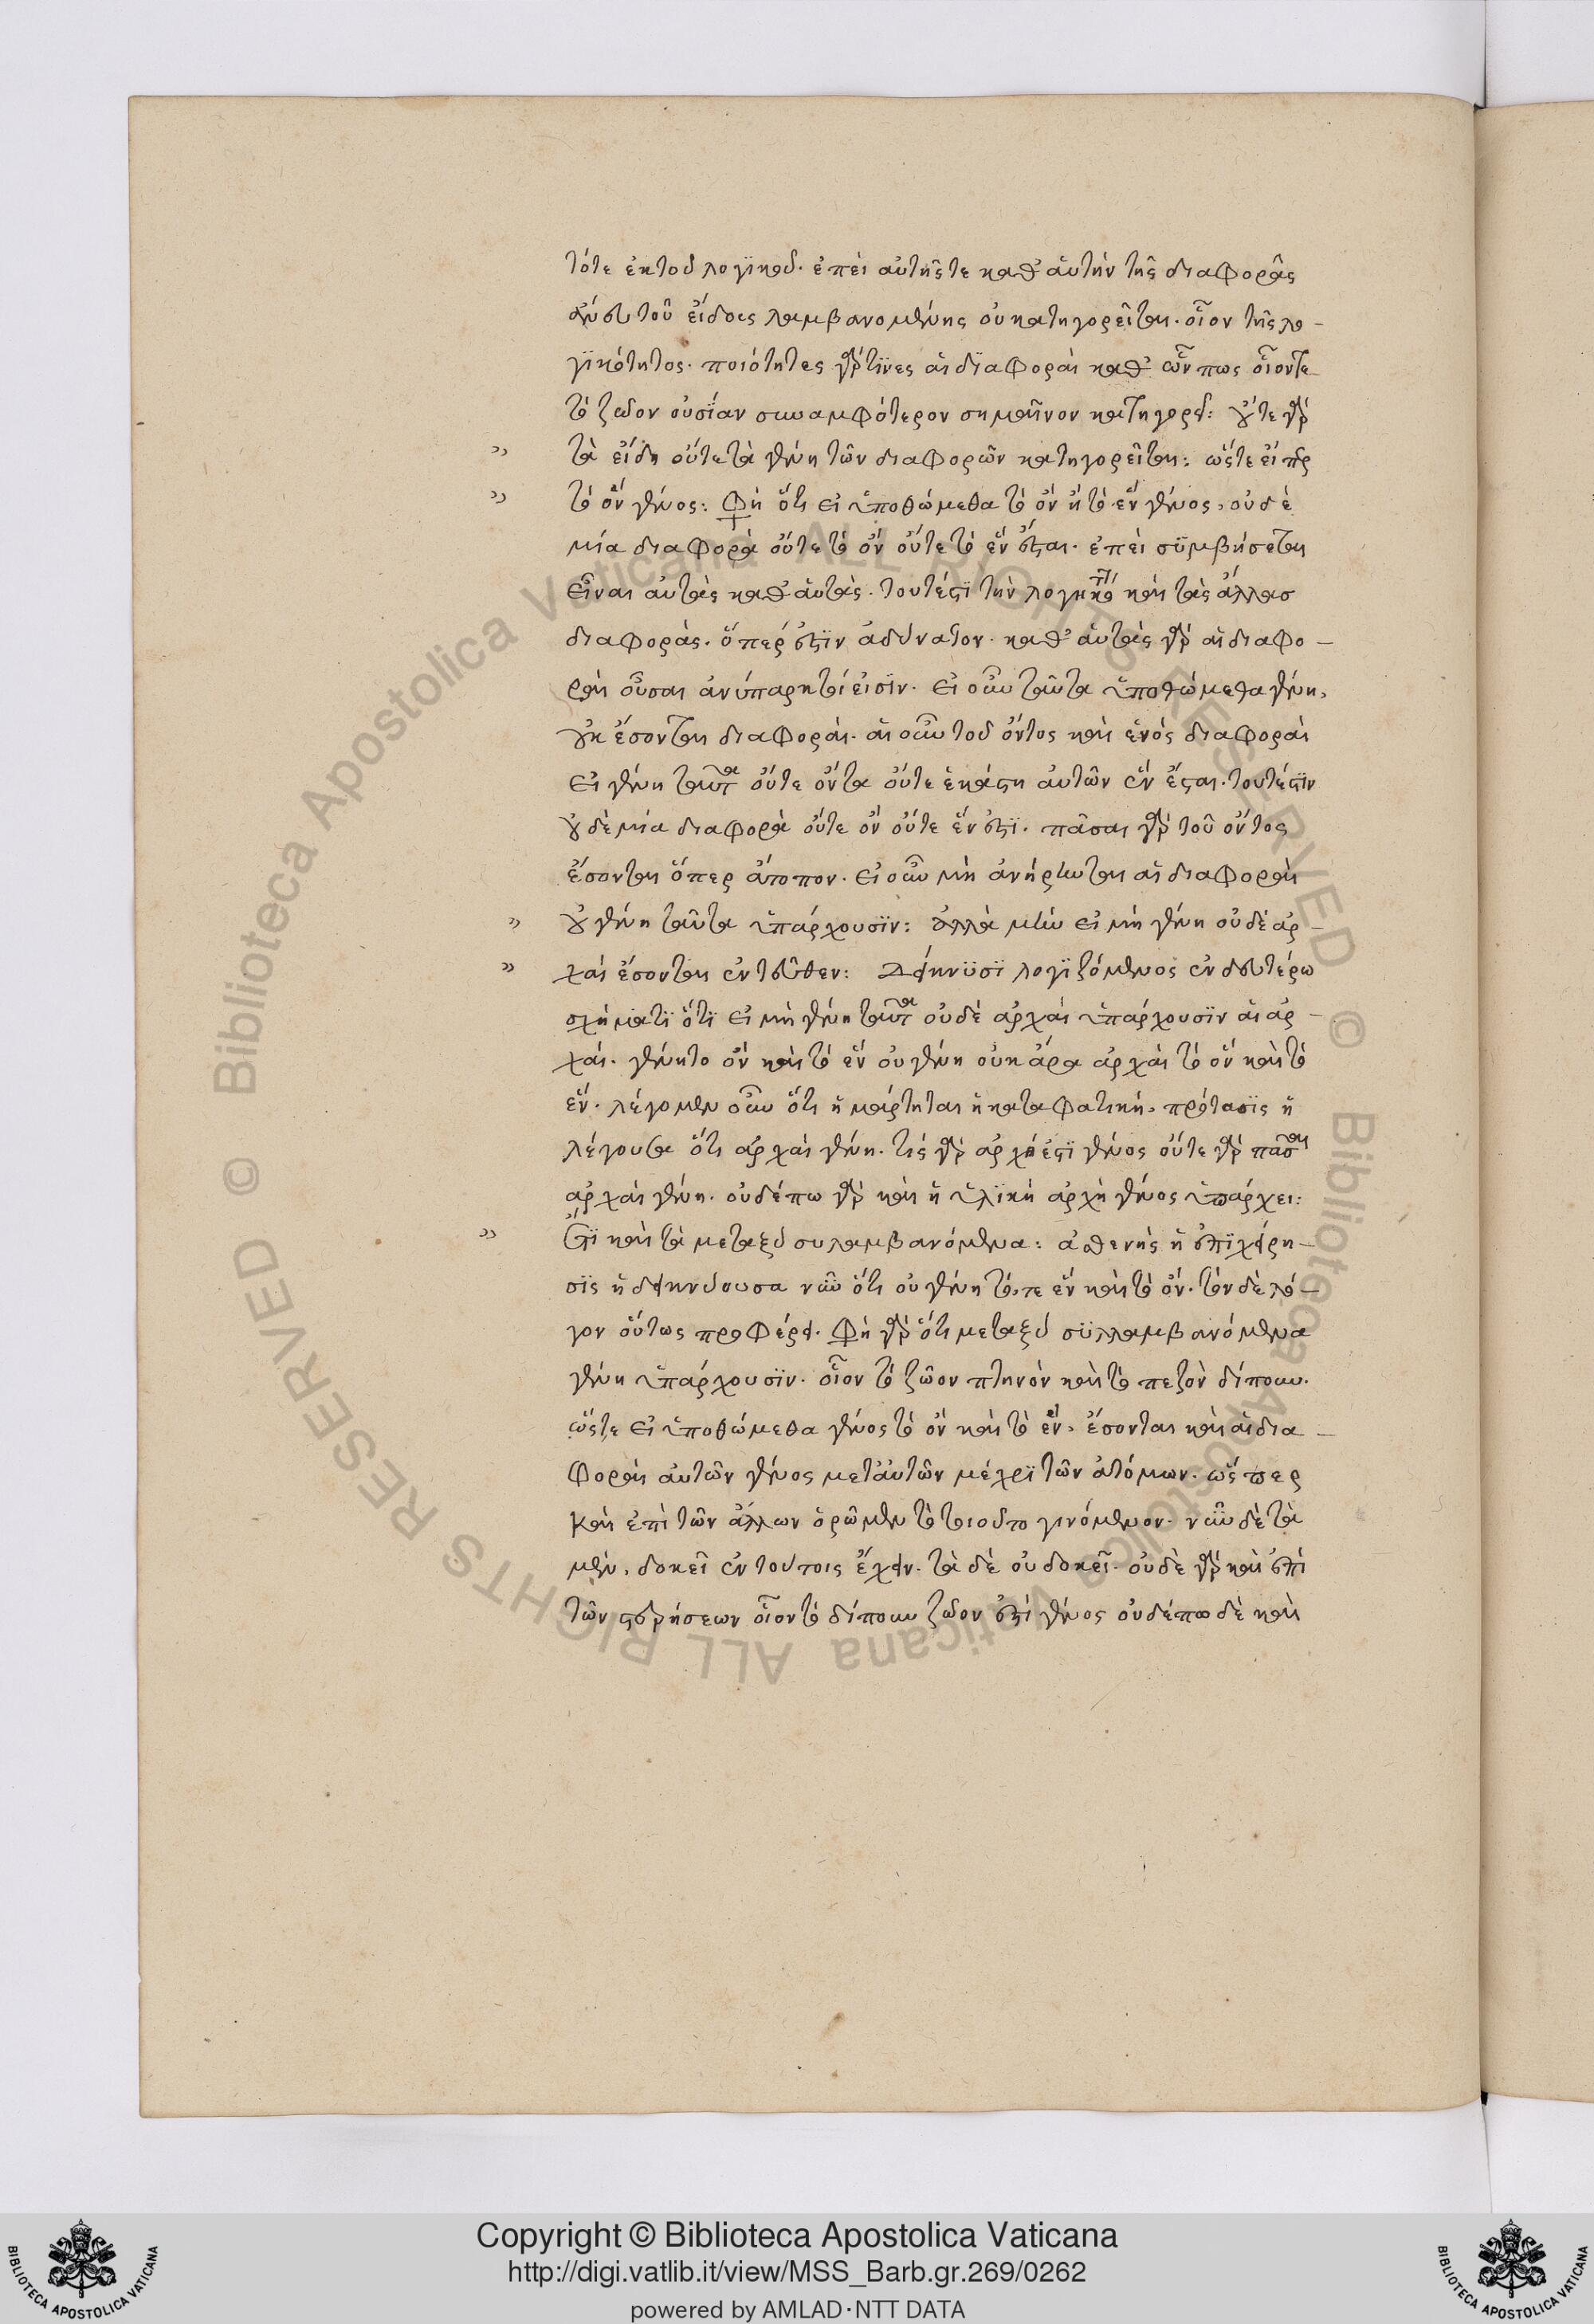 τότε ἐκ τοῦ λογϊκοῦ. ἐπεὶ αὐτῆς τε καθ' αὑτὴν τῆς διαφορᾶς
ἄνευ τοῦ εἴδους λαμβανομένης οὐ κατηγορεῖται. οἷον τῆς λο-
γϊκότητος. ποιότητες γάρ τϊνες αἱ δϊαφοραὶ καθ' ὧν πως οἷόν τε
τὸ ζῶον οὐσΐαν συναμφότερον σημαῖνον κατηγορεῖ: οὔτε γὰρ
" τὰ εἴδη οὔτε τὰ γένη τῶν διαφορῶν κατηγορεῖται: ὥστε εἴπερ
" τὸ ὂν γένος: Φη ὅτι εἰ ὑποθώμεθα τὸ ὂν ἢ τὸ ἓν γένος, οὐδὲ
μία διαφορὰ οὔτε τὸ ὂν οὔτε τὸ ἓν ἔσται. ἐπεὶ σϋμβήσεται
εἶναι αὐτὰς καθ' αὑτὰς. τουτέστϊ τὴν λογικότητα καὶ τὰς ἄλλας
διαφοράς. ὅπερ ἐστϊν ἀδύνατον. καθ' αὑτὰς γὰρ αἱ διαφο-
ραὶ οὖσαι ἀνύπαρκτοί εἰσϊν. εἰ οὖν ταῦτα ὑποθώμεθα γένη,
οὐκ ἔσονται διαφοραί. αἱ οὖν τοῦ ὄντος καὶ ἑνὸς διαφοραὶ
εἰ γένη ταῦτα οὔτε ὄντα οὔτε ἑκάστη αὐτῶν ἓν ἔσται. τουτέστϊν
οὐδὲ μία διαφορὰ οὔτε ὂν οὔτε ἕν ἐστϊ. πᾶσαι γὰρ τοῦ ὄντος
ἔσονται ὅπερ ἄτοπον. εἰ οὖν μὴ ἀνῄρηνται αἱ διαφοραὶ
" οὐ γένη ταῦτα ὑπάρχουσϊν: ἀλλὰ μὴν εἰ μὴ γένη οὐδὲ ἀρ-
" χαὶ ἔσονται ἐντεῦθεν: Δείκνϋσϊ λογϊζόμενος ἐν δευτέρω
σχήματϊ ὅτϊ εἰ μὴ γένη ταῦτα οὐδὲ ἀρχαὶ ὑπάρχουσϊν αἱ ἀρ-
χαὶ. γένη τὸ ὂν καὶ τὸ ἓν οὐ γένη οὐκ ἄρα ἀρχαὶ τὸ ὂν καὶ τὸ
ἕν. λέγομεν οὖν ὅτι ἡμάρτηται ἡ καταφατικὴ, πρότασϊς ἡ
λέγουσα ὅτι ἀρχαὶ γένη. τίς γὰρ ἀρχὴ ἐστϊ γένος οὔτε γὰρ πᾶσαι
ἀρχαὶ γένη. οὐδέπω γὰρ καὶ ἡ ὑλϊκὴ ἀρχὴ γένος ὑπάρχει:
" Ἔτϊ καὶ τὰ μεταξὺ συλαμβανόμενα: ἀσθενής ἡ ἐπϊχείρη-
σϊς ἡ δεικνύουσα νῦν ὅτι οὐ γένη τό,τε ἓν καὶ τὸ ὄν. τὸν δὲ λό-
γον οὕτως προφέρει. Φη γὰρ ὅτι μεταξὺ σϋλλαμβανόμενα
γένη ὑπάρχουσϊν. οἷον τὸ ζῶον πτηνὸν καὶ τὸ πεζὸν δίπουν.
ὥστε εἰ ὑποθώμεθα γένος τὸ ὂν καὶ τὸ ἕν, ἔσονται καὶ αἱ δια-
φοραὶ αὐτῶν γένος μετ' αὐτῶν μέχρϊ τῶν ἀτόμων. ὥσπερ
καὶ ἐπὶ τῶν ἄλλων ὁρῶμεν τὸ τοιοῦτο γινόμενον. νῦν δὲ τὰ
μὲν, δοκεῖ ἐν τούτοις ἔχειν. τὰ δὲ οὐ δοκεῖ. οὐδὲ γὰρ καὶ ἐπὶ
τῶν στερήσεων οἷον τὸ δίπουν ζῶον ἐστὶ γένος οὐδέπω δὲ καὶ
Copyright © Biblioteca Apostolica Vaticana
http://digi.vatlib.it/view/MSS_Barb.gr.269/0262
powered by AMLAD·NTT DATA